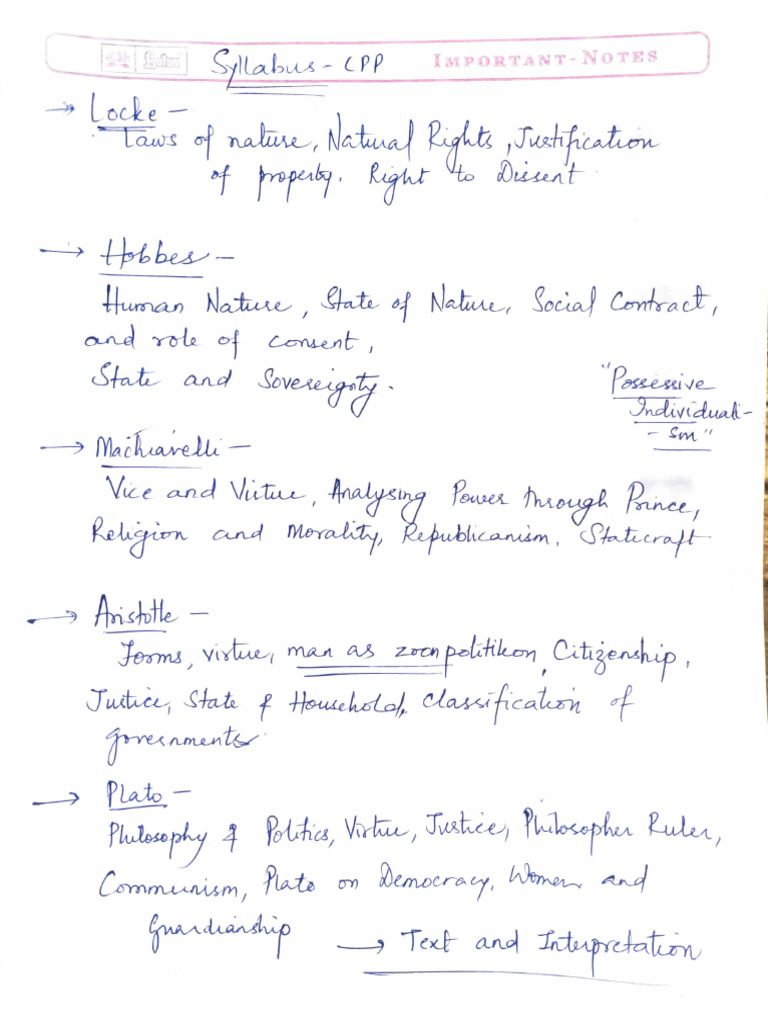 Syllabus - CPP IMPORTANT-NOTES
→ Locke -
Laws of nature, Natural Rights, Justification
of property. Right to Dissent
→ Hobbes -
Human Nature, State of Nature, Social Contract,
and role of consent,
State and Sovereignty.
"Possessive
Individuali-
- sm"
→ Machiavelli -
Vice and Virtue, Analysing Power through Prince,
Religion and Morality, Republicanism, Statecraft
→ Aristotle -
Forms, virtue, man as zoon politikon, Citizenship,
Justice, State & Household, Classification of
governments
→ Plato -
Philosophy & Politics, Virtue, Justice, Philosopher Ruler,
Communism, Plato on Democracy, Women and
Guardianship
→ Text and Interpretation